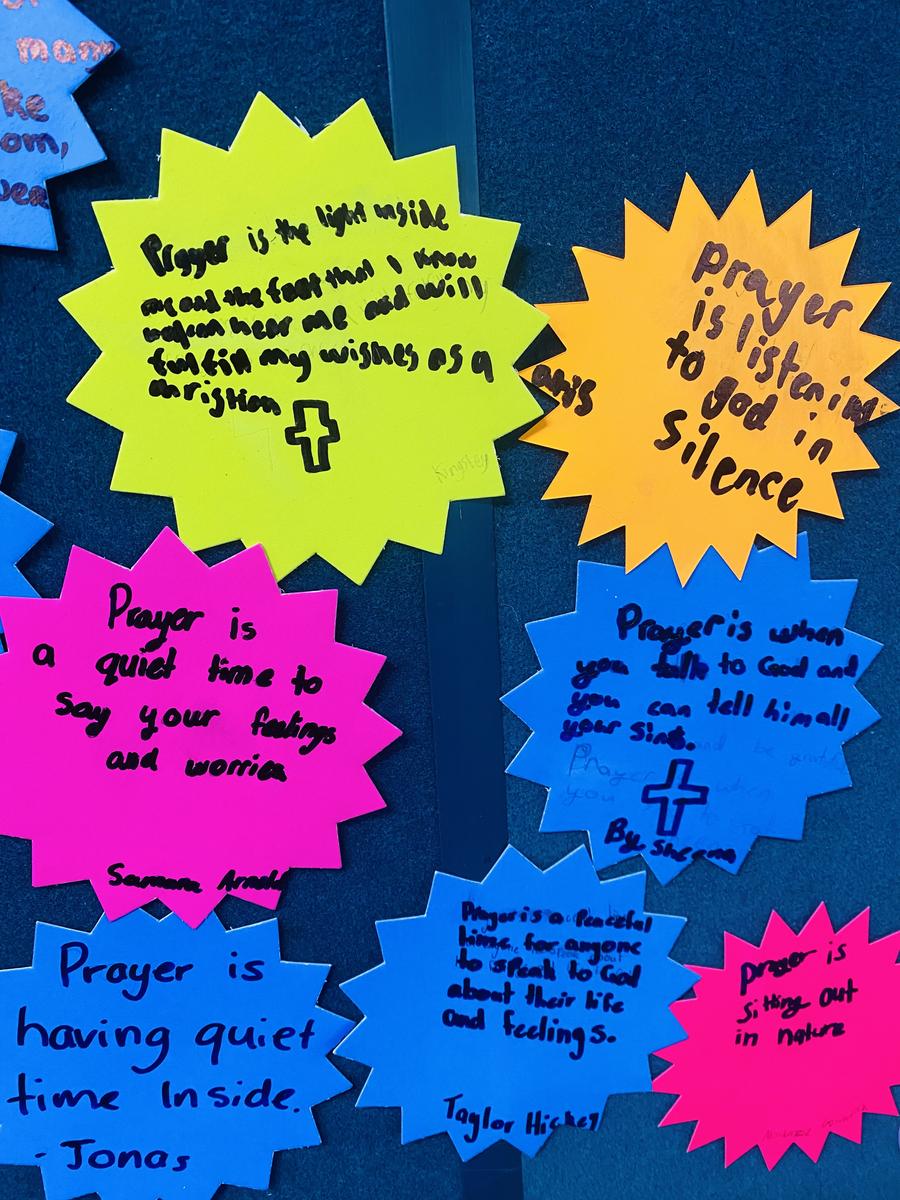 man
ke
om,
Prayer is the light inside
me and the fact that I know
hear me and will
fulfill my wishes as a
christian
Kingsley
Prayer
is listening
to god in
Silence
Prayer is
a quiet time to
say your feelings
and worries
Samara Arnold
Prayer is when
you talk to God and
you can tell him all
your sins.
and be
Prayer when
you
By
Prayer is
having quiet
time Inside.
- Jonas
Prayer is a Peaceful
time for anyone
to speak to God
about their life
and feelings.
Taylor Hickey
prayer is
sitting out
in nature